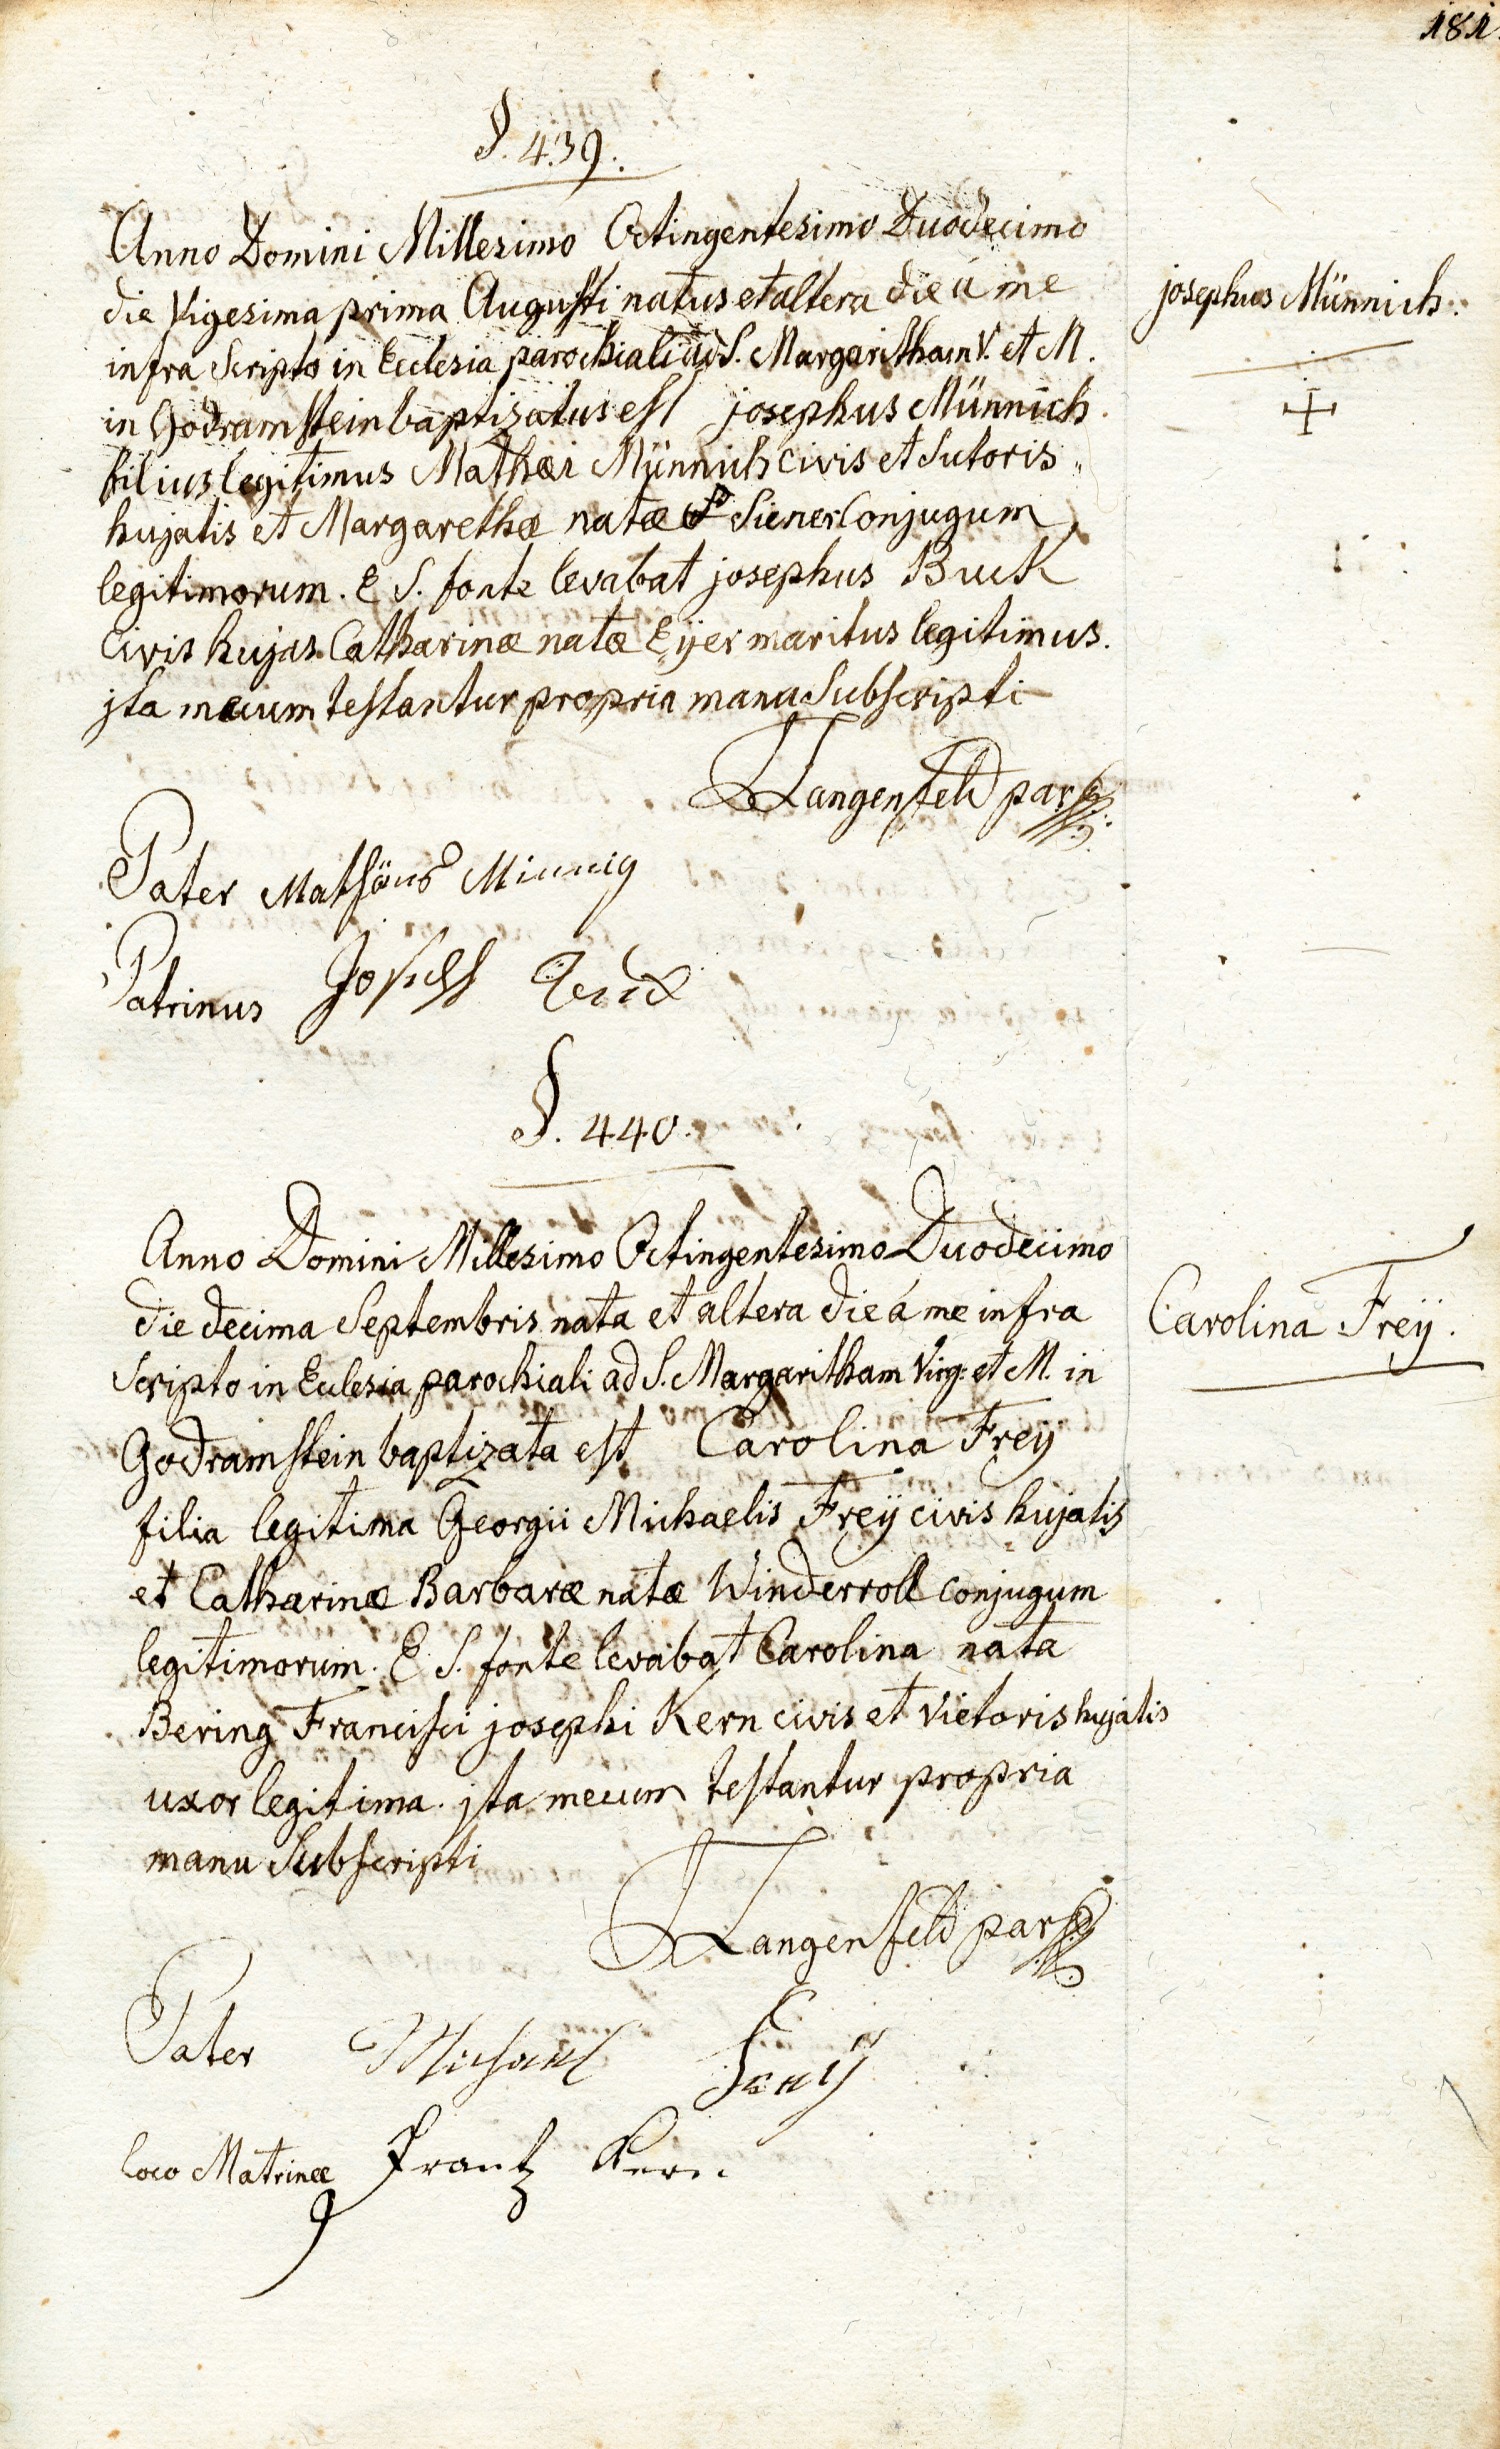 181.
§. 439.
Anno Domini Millesimo Octingentesimo Duodecimo
die Vigesima prima Augusti natus et altera die á me
infra Scripto in Ecclesia parochiali ad S. Margaritham V. et M.
in Godramstein baptizatus est josephus Münnich.
filius legitimus Mathæi Münnich civis et Sutoris
hujatis et Margarethæ natæ Siener Conjugum
legitimorum. E S. fonte levabat josephus Buck
Civis hujas Catharinæ natæ Eijer maritus legitimus.
jta mecum testantur propria manu Subscripti
Langenfeld par
Pater Mathäus Minnig
Patrinus Joseph Buck
josephus Münnich.
§. 440.
Anno Domini Millesimo Octingentesimo Duodecimo
die decima Septembris nata et altera die á me infra
Scripto in Ecclesia parochiali ad S. Margaritham Virg: et M. in
Godramstein baptizata est Carolina Freÿ
filia legitima Georgii Michaelis Freÿ civis hujatis
et Catharinæ Barbaræ natæ Winderroll conjugum
legitimorum. E S. fonte levabat Carolina nata
Bering Francisci josephi Kern civis et Vietoris hujatis
uxor legitima. jta mecum testantur propria
manu Subscripti
Langenfeld par
Pater Michael Freÿ
loco Matrinæ Frantz Kern
Carolina Freÿ.